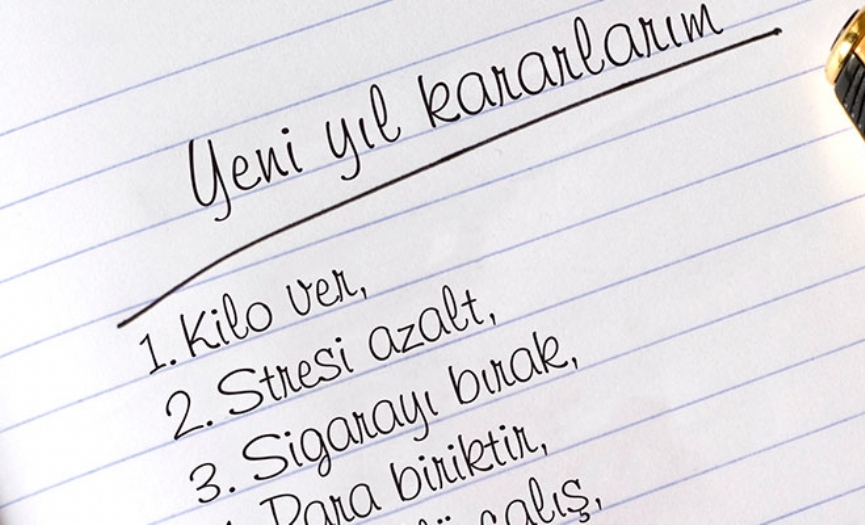 Yeni yıl kararlarım
1. Kilo ver,
2. Stresi azalt,
3. Sigarayı bırak,
Para biriktir,
çalış,